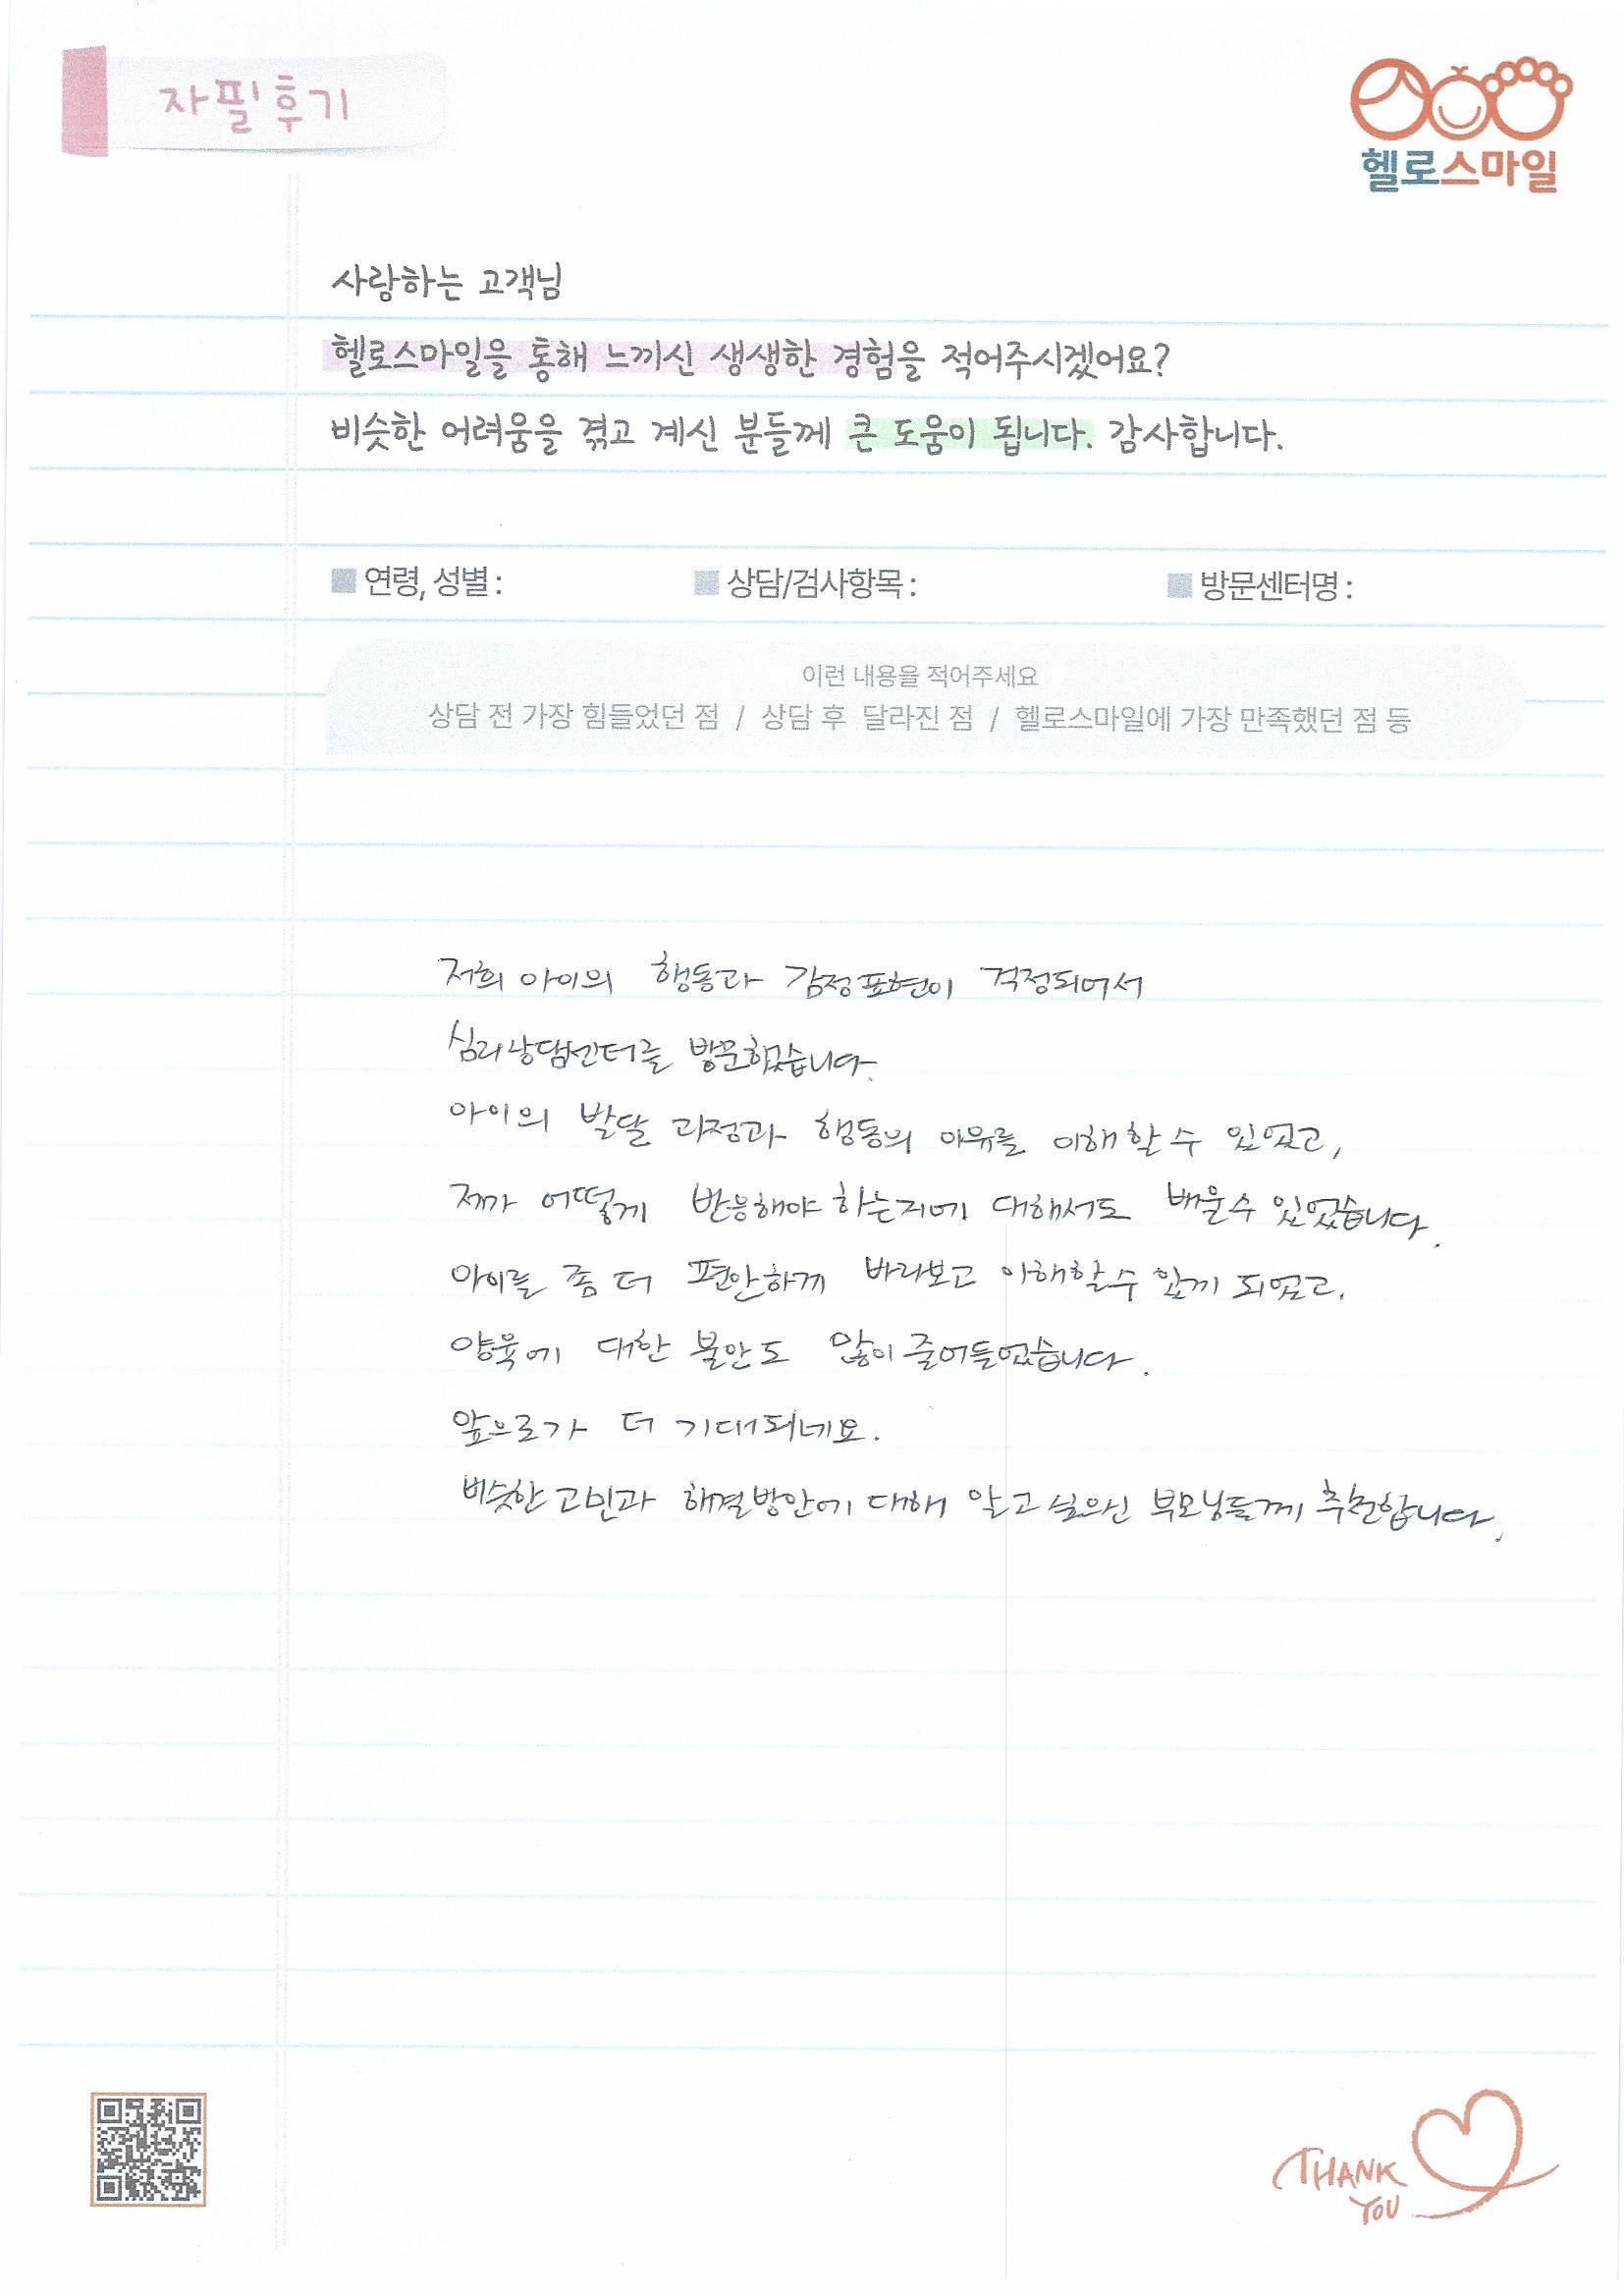 자필후기
헬로스마일
사랑하는 고객님
헬로스마일을 통해 느끼신 생생한 경험을 적어주시겠어요?
비슷한 어려움을 겪고 계신 분들께 큰 도움이 됩니다. 감사합니다.
연령, 성별 : 상담/검사항목 : 방문센터명 :
이런 내용을 적어주세요
상담 전 가장 힘들었던 점 / 상담 후 달라진 점 / 헬로스마일에 가장 만족했던 점 등
저희 아이의 행동과 감정표현이 걱정되어서
심리상담센터를 방문했습니다.
아이의 발달 과정과 행동의 이유를 이해할 수 있었고,
제가 어떻게 반응해야 하는지에 대해서도 배울수 있었습니다.
아이를 좀 더 편안하게 바라보고 이해할수 있게 되었고.
양육에 대한 불안도 많이 줄어들었습니다.
앞으로가 더 기대되네요.
비슷한 고민과 해결방안에 대해 알고 싶으신 부모님들께 추천합니다.
THANK
YOU